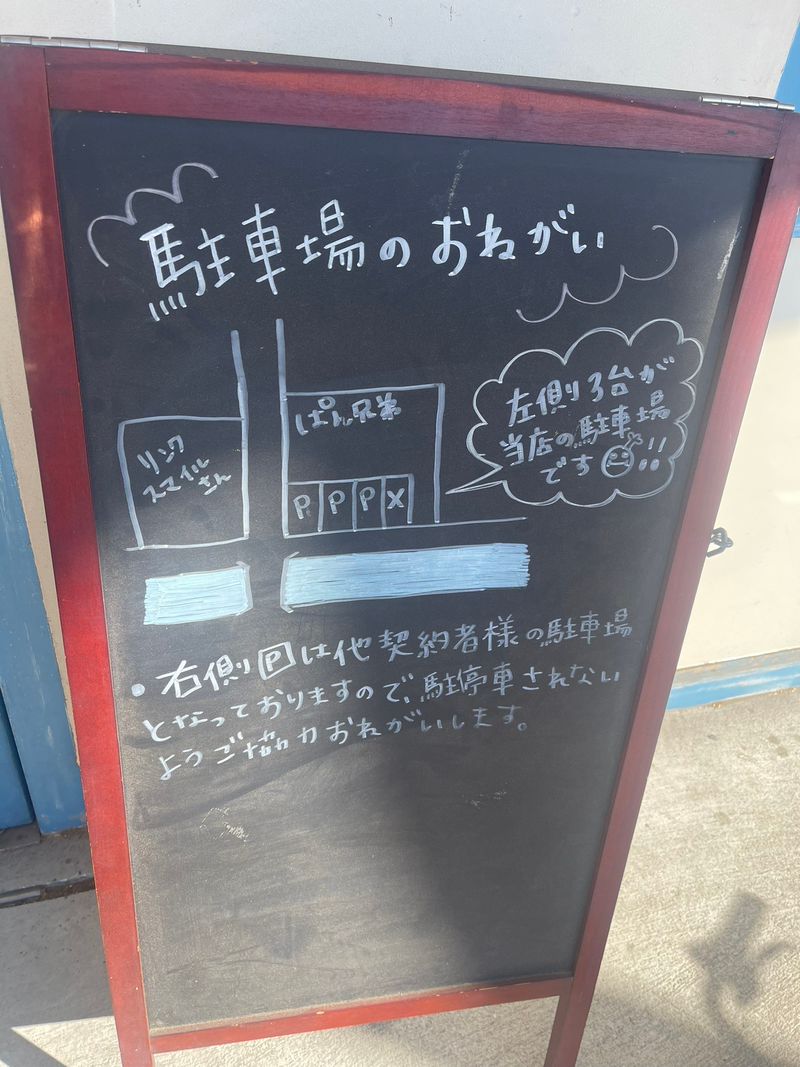 駐車場のおねがい
リンク
スマイル
さん
ぱん兄弟
P P P X
左側3台が
当店の駐車場
です!!
・右側Pは他契約者様の駐車場
となっておりますので、駐停車されない
ようご協力おねがいします。